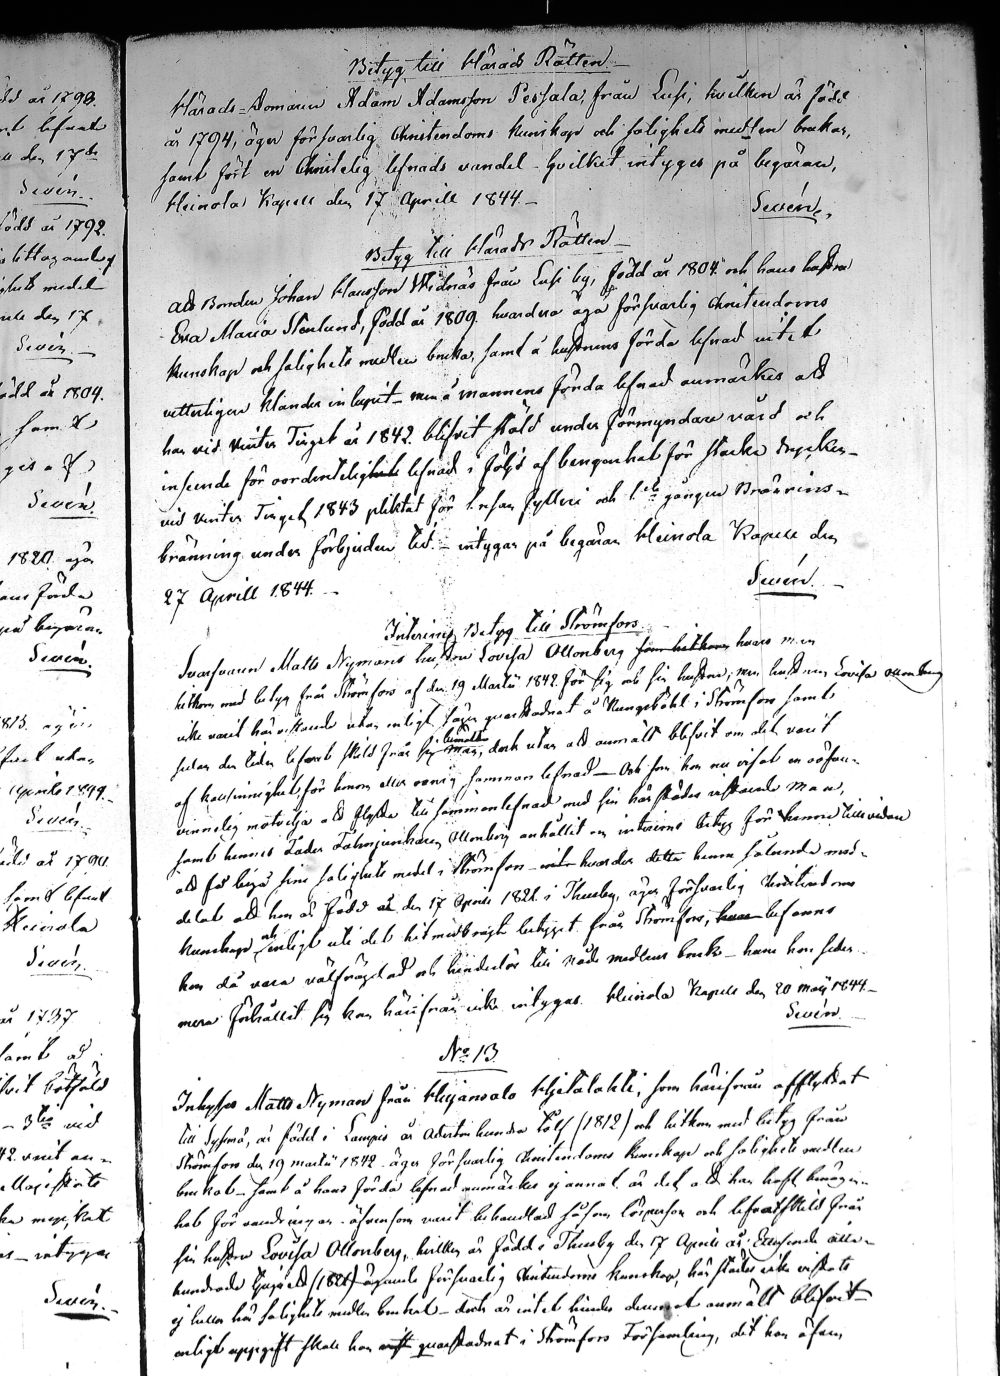 dd år 1793.
befunt
den 17de
Sevén.
född år 1792.
medel
den 17
Sevén.
född år 1804.
samt
Sevén.
1820 äger
förda
begäran
Sevén.
1813. äger
Aprill 1844.
Sevén.
år 1790.
samt lefvat
Heinola
Sevén.
år 1737
samt
3die vid
42. varit an-
intygas
Sevén.
Betyg till Härads Rätten
Härads-Domaren Adam Adamsson Pessala, från Lusi, hvilken är född
år 1794, äger försvarlig Christendoms kunskap och salighets medlen brukar,
samt fört en Christelig lefnads vandel - hvilket intyges på begäran,
Heinola Kapell den 17 Aprill 1844 -
Sevén.
Betyg till Härads Rätten
Att Bonden Johan Hansson Widnäs från Lusi by, född år 1804 och hans hustru
Eva Maria Stenlund, född år 1809. hvardera äga försvarlig Christendoms
kunskap och salighets medlen bruka, samt å hustruns förda lefnad intet
vetterligen klander inlupit - men å mannens förda lefnad anmärkes att
han vid Vinter Tinget år 1842 blifvit ställd under förmyndare vård och
inseende för oordenteligt lefnad i följd af benägenhet för starka drycker -
vid Vinter Tinget 1843 pliktat för 1 resan fylleri och 1sta gången Bränvins-
bränning under förbjuden tid. - intygar på begäran Heinola Kapell den
27 Aprill 1844. -
Sevén.
Interims Betyg till Strömfors
Svarfvaren Matts Nymans hustru Lovisa Ottonberg som hitkom hvars man
hitkom med betyg från Strömfors af den 19 Martii 1842 för sig och sin hustru, men hustrun Lovisa Ottonberg
icke varit härvistande utan enligt säger quarstadnat å Kungsböhl i Strömfors samt
sedan den tiden lefvat skild från sin bemälte man, dock utan att anmält blifvit om det varit
af kallsinnighet för honom eller oenig sammanlefnad - Och som hon nu visat en oöfver-
vinnelig motvilja att flytta till sammanlefnad med sin härstädes vistande man,
samt hennes Fader Ottonberg anhållit om interims betyg för henne tillsvidare
att få begå sina salighets medel i Strömfors - hvarder detta henne sålunda med-
delat att hon är född den 17 Aprill 1821 i Thusby, äger försvarlig Christendoms
kunskap och enligt uti det hitmedbragte betyget från Strömfors, befanns
hon då vara välfrägdad och hinderlös till nåde medlens bruk - huru hon seder-
mera förhållit sig kan härifrån icke intygas. Heinola Kapell den 20 Maij 1844 -
Sevén.
No 13
Inhyses Matts Nyman från Hujansalo Hietalahti, som härifrån afflyttat
till Sysmä, är född i Lampis år Adertonhundra tolf (1812) och hitkom med betyg från
Strömfors den 19 Martii 1842 - äger försvarlig Christendoms kunskap och salighets medlen
brukat - samt å hans förda lefnad anmärkes ej annat än det att han haft benägen-
het för vandringar - äfvensom varit behandlad såsom lösperson och lefvat skild från
sin hustru Lovisa Ottonberg, hvilken är född i Thusby den 17 Aprill år Ettusende åtta-
hundrade tjuguett (1821) ägande försvarlig Christendoms kunskap, härstädes icke vistats
ej heller här salighets medlen brukat - dock är intet hinder deremot anmält blifvit -
enligt uppgift skall hon quarstadnat i Strömfors Församling, dit hon äfven